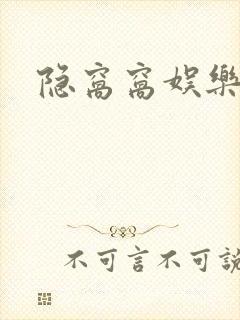 隐窝窝娱樂
不可言不可說